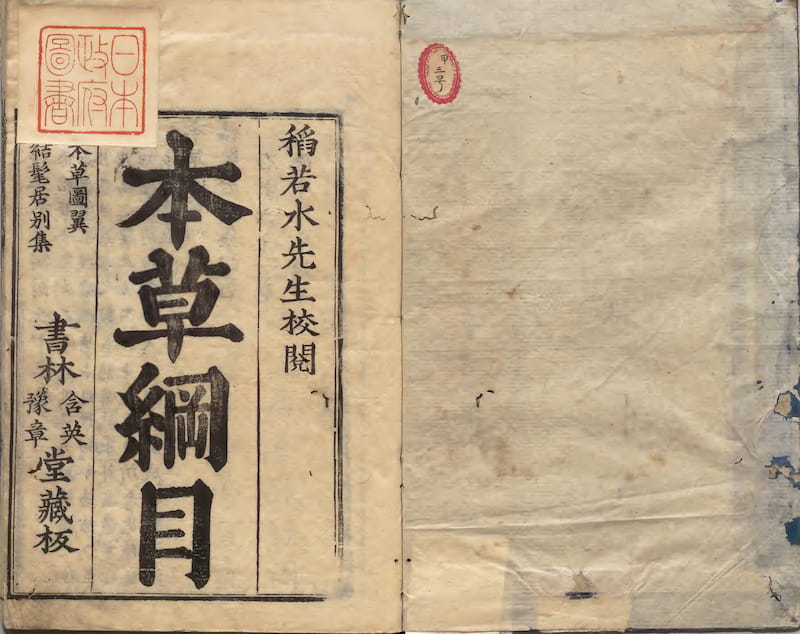 甲
三号
稻若水先生校閱
本草綱目
本草圖翼
結髦居別集
書林
含英
豫章
堂藏板
日本
政府
圖書